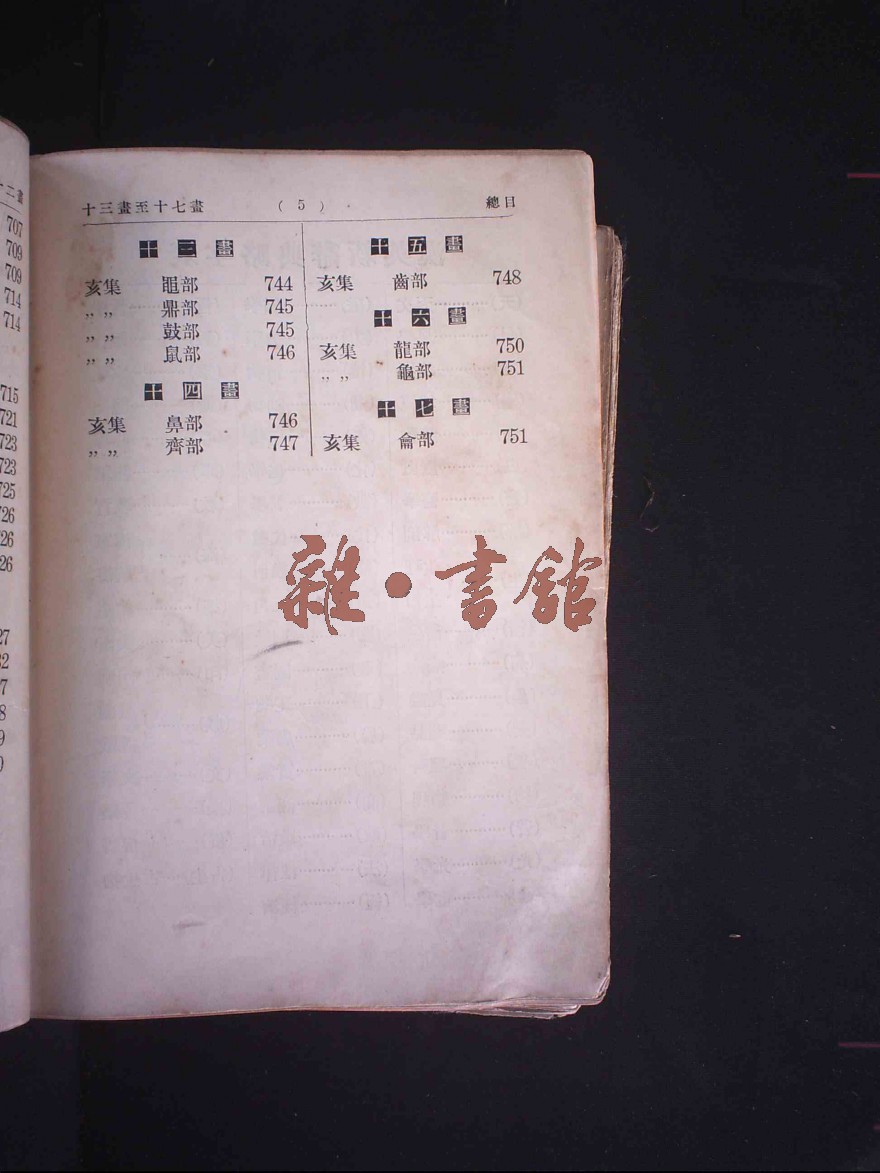 707
709
709
714
714
715
721
723
723
725
726
726
726
十三畫至十七畫 ( 5 ) 總目
十三畫
亥集 黽部 744
〃〃 鼎部 745
〃〃 鼓部 745
〃〃 鼠部 746
十四畫
亥集 鼻部 746
〃〃 齊部 747
十五畫
亥集 齒部 748
十六畫
亥集 龍部 750
〃〃 龜部 751
十七畫
亥集 侖部 751
雜·書館